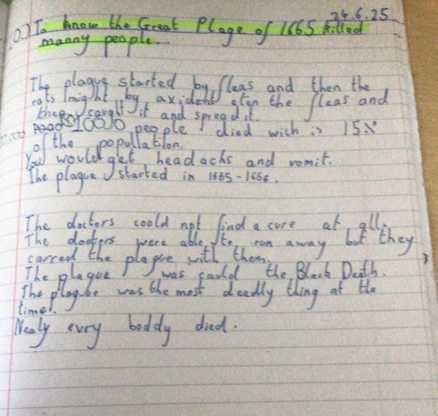 24.6.25
O.) To know the Great Plage of 1665 killed
manny people.
The plague started by fleas and then the
rats might by axident the fleas and
they caught it and spread it.
100,000 people died wich is 15%
of the popullatiton.
You would get headachs and vomit.
The plague started in 1665-1666.
The doctors coold not find a cure at all.
The doctors were able to run away but they
carred the plague with them.
The plague was called the Black Death.
The plague was the most deadly thing at the
time!
Nealy evry boddy died.